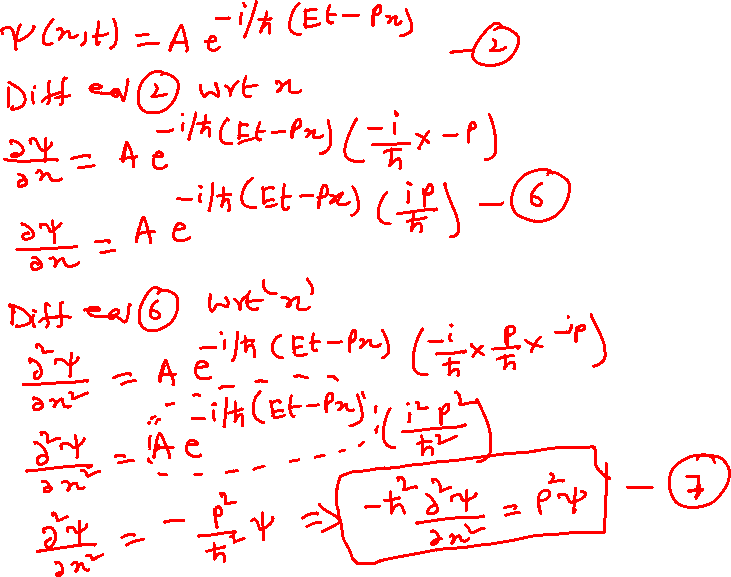 ψ(x,t) = A e^{-i/ħ (Et-Px)} - ②
Diff eq ② wrt x
∂ψ/∂x = A e^{-i/ħ (Et-Px)} (-i/ħ × -P)
∂ψ/∂x = A e^{-i/ħ (Et-Px)} (iP/ħ) - ⑥
Diff eq ⑥ wrt 'x'
∂²ψ/∂x² = A e^{-i/ħ (Et-Px)} (-i/ħ × P/ħ × -iP)
∂²ψ/∂x² = A e^{-i/ħ (Et-Px)} (i²P²/ħ²)
∂²ψ/∂x² = -P²/ħ² ψ ⇒ -ħ² ∂²ψ/∂x² = P²ψ - ⑦